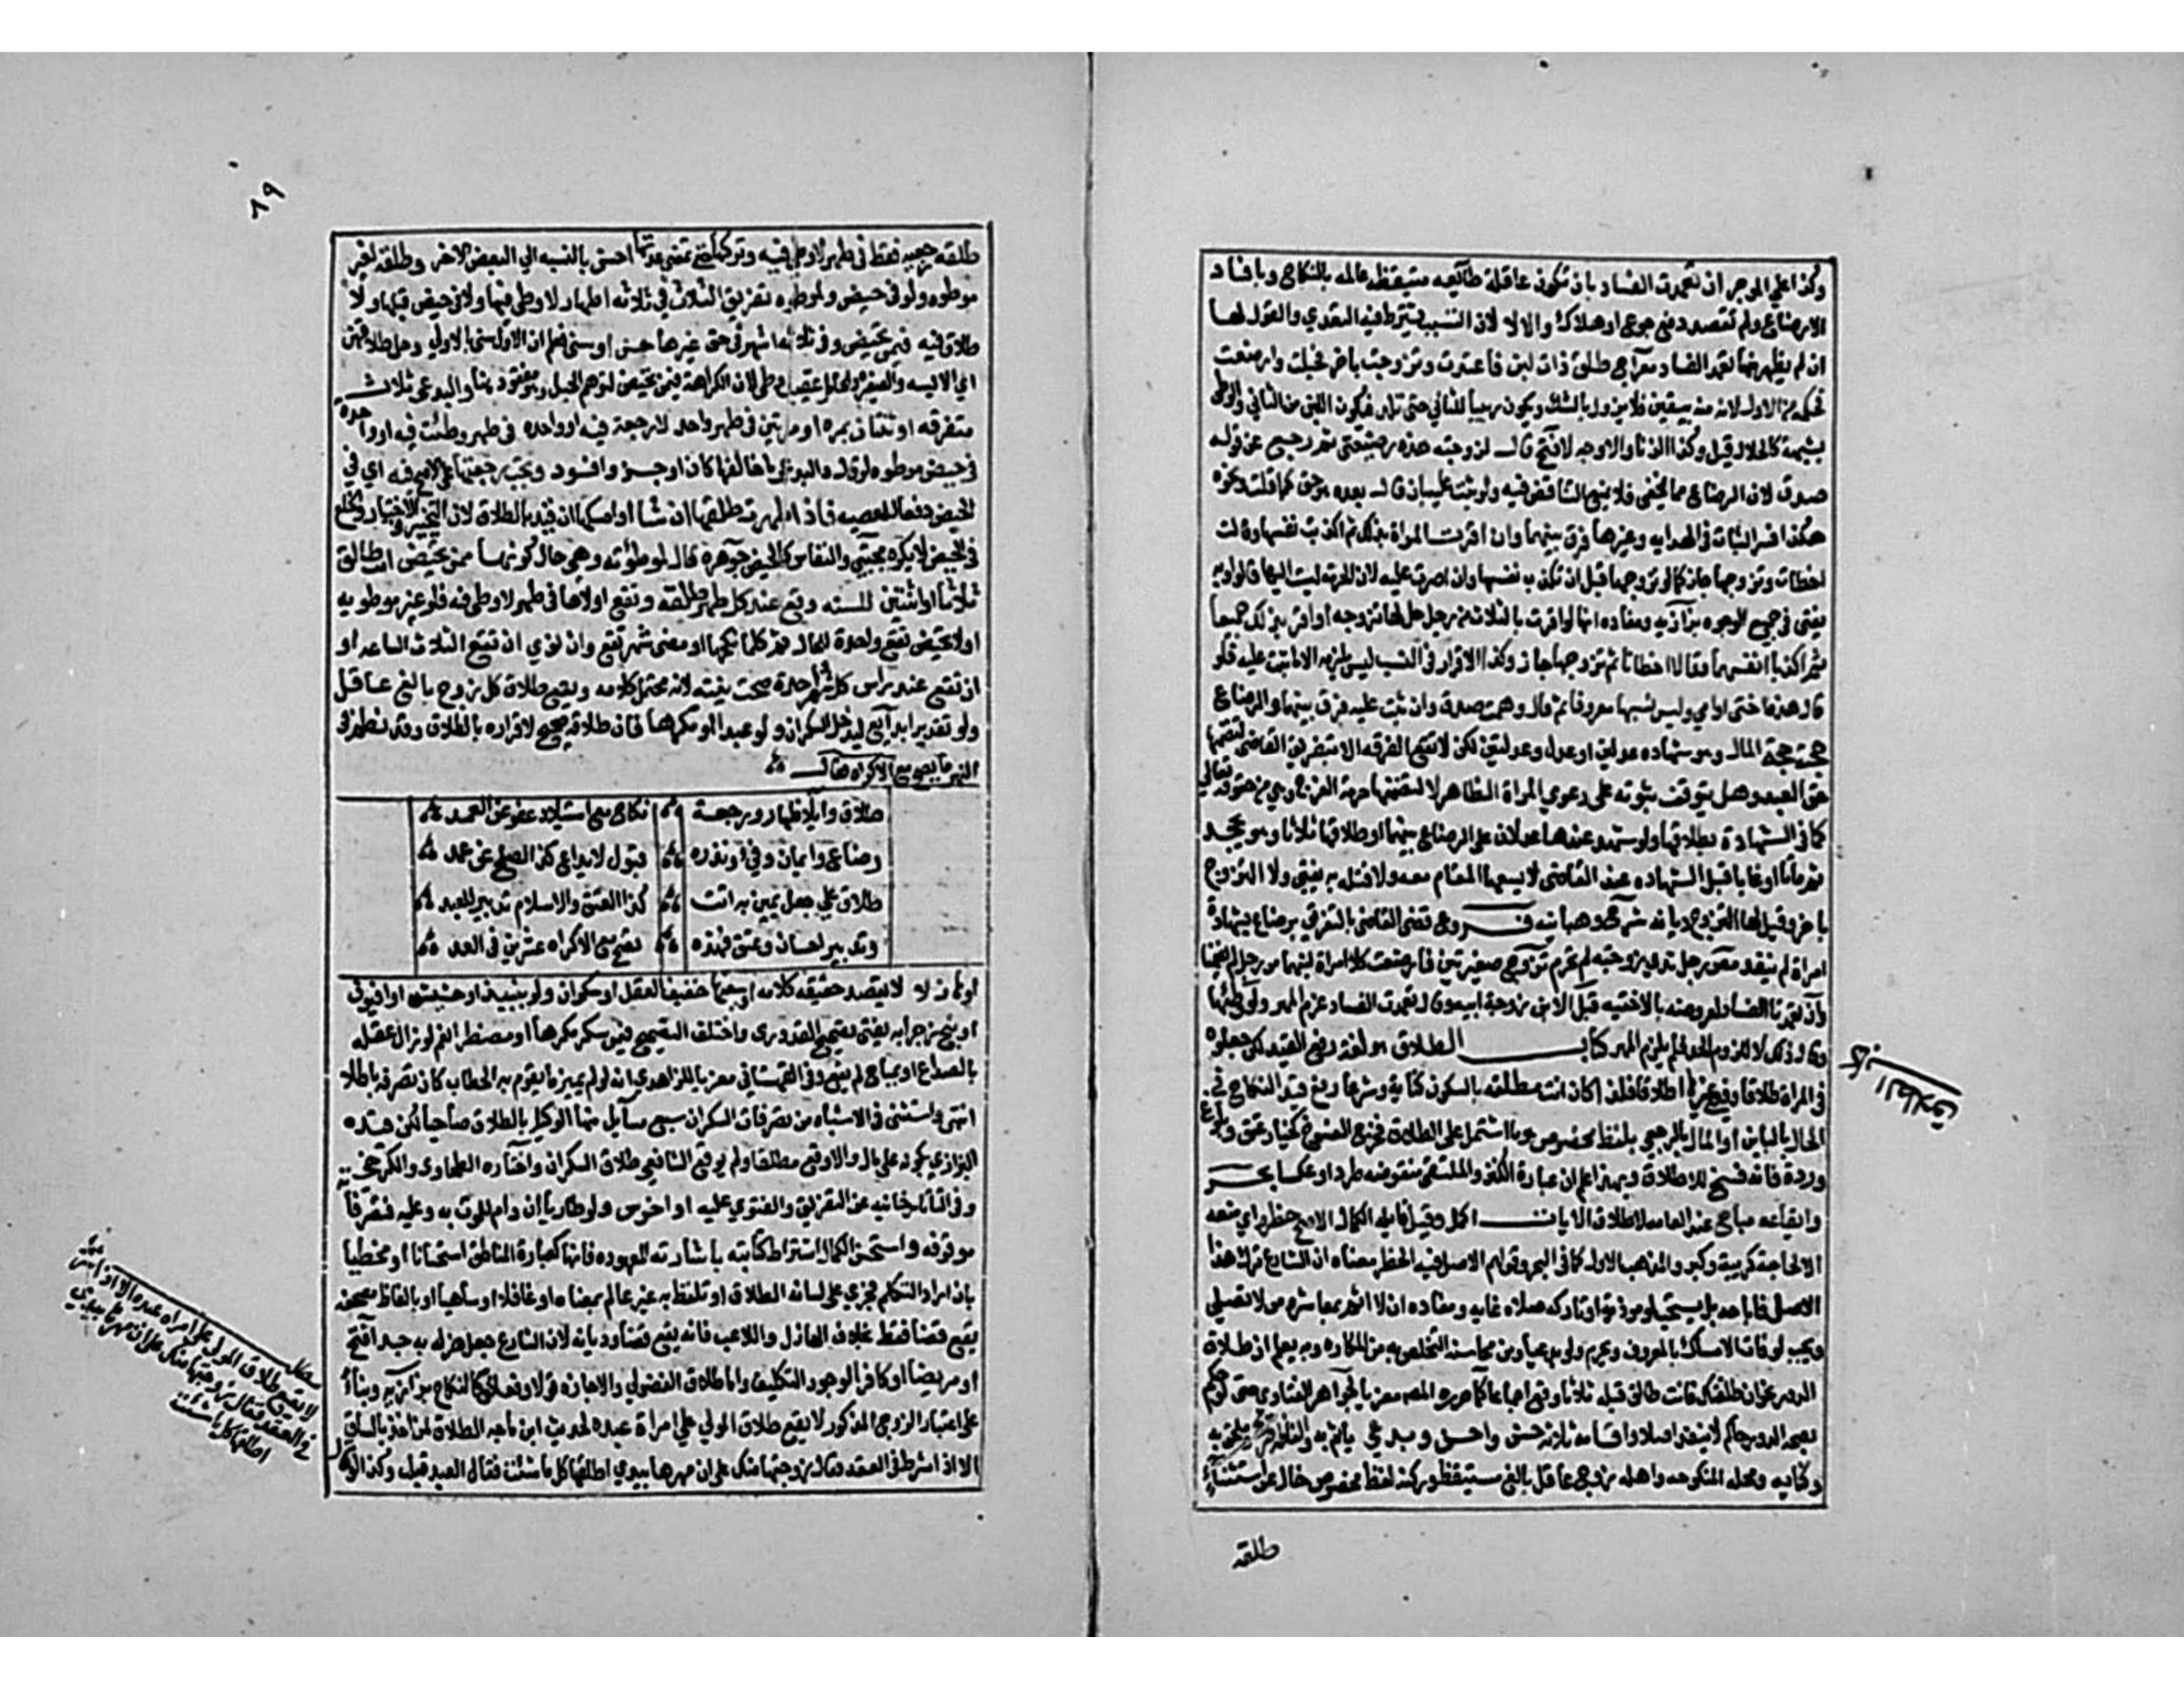 وكذا علي الموجر ان تعمدت الفساد بان تكون عاقلة طايعه متيقظه عالمه بالنكاح وبافساد
الارضاع ولم تقصد دفع جوع او هلاك والا لا لان التسبب يشترط فيه التعدي والقول لها
ان لم يظهر منها تعمد الفساد معراج طلق ذات لبن فاعتدت وتزوجت باخر فحبلت وارضعت
فحكمه من الاول لانه منه بيقين فلا يزول بالشك ويكون ربيبا للثاني حتى تلد فيكون اللبن من الثاني والوطي
بشبهة كالحلال قيل وكذا الزنا والاوجه لا فتح قال لزوجته هذه رضيعتي ثم رجع عن قوله
صدق لان الرضاع مما يخفى فلا يمنع التناقض فيه ولو ثبت عليه بان قال بعده هو حق كما قلت ونحوه
هكذا فسر الثبات في الهدايه وغيرها فرق بينهما وان اقرت المراة بذلك ثم اكذبت نفسها وقالت
اخطات وتزوجها جاز كما لو تزوجها قبل ان تكذب نفسها وان اصرت عليه لان الحرمة ليست اليها قالوا وبه
يفتى في جميع الوجوه بزازيه ومفاده انها لو اقرت بالثلاث من رجل حل لها تزوجه او اقر بذلك جميعا
ثم اكذبا انفسهما وقالا اخطانا ثم تزوجها جاز وكذا الاقرار في النسب ليس يلزمه الا ما ثبت عليه فلو
قال هذه اختى او امي وليس نسبها معروفا ثم قال وهمت صدق وان ثبت عليه فرق بينهما والرضاع
حجته حجة المال وهو شهاده عدلين او عدل وعدلتين لكن لا تقع الفرقه الا بتفريق القاضي لتضمنها
حق العبد وهل يتوقف ثبوته على دعوي المراة الظاهر لا لتضمنها حرمة الفرج وهي من حقوقه تعالى
كما في الشهادة بطلاقها ولو شهد عندها عدلان على الرضاع بينهما او طلاقها ثلاثا وهو يجحد
ثم ماتا او غابا قبل الشهاده عند القاضي لا يسعها المقام معه ولا قتله به يفتى ولا التزوج
باخر وقيل لها التزوج ديانه شرح وهبانيه فروع قضى القاضي بالتفريق برضاع بشهادة
امراة لم ينفذ مص رجل ثدي زوجته لم تحرم تزوج صغيرتين فارضعت كلا امراة لبنهما من رجل لم يضمنا
وان تعمدتا الفساد لعروضه بالاختيه قبل الابن زوجة ابيه وقال تعمدت الفساد غرم المهر ولو وطئها
وقال ذلك لا للزوم الحد فلم يلزم المهر كتاب الطلاق هو لغة رفع القيد لكن جعلوه
في المراة طلاقا وفي غيرها اطلاقا فلذا كان انت مطلقه بالسكون كناية وشرعا رفع قيد النكاح في
الحال بالباين او المال بالرجعي بلفظ مخصوص هو ما اشتمل على الطلاق فخرج الفسوخ كخيار عتق وبلوغ
وردة فانه فسخ لا طلاق وبهذا علم ان عبارة الكنز والملتقى منقوضه طردا وعكسا بحر
وايقاعه مباح عند العامه لاطلاق الايات اكمل وقيل قايله الكمال الاصح حظره اي منعه
الا لحاجة كريبة وكبر والمذهب الاول كما في البحر وقولهم الاصل فيه الحظر معناه ان الشارع ترك هذا
الاصل فاباحه بل يستحب لو موذية او تاركه صلاه غايه ومفاده ان لا اثم بمعاشرة من لا تصلي
ويجب لو فات الامساك بالمعروف ويحرم لو بدعيا ومن محاسنه التخلص به من المكاره وبه يعلم ان طلاق
الدور بنحو ان طلقتك فانت طالق قبله ثلاثا واقع اجماعا كما حرره المصه معزيا لجواهر الفتاوي حتى لو حكم
بصحة الدور حاكم لا ينفذ اصلا واقسامه ثلاثه حسن واحسن وبدعي ياثم به والفاظه صريح وملحق به
وكنايه ومحله المنكوحه واهله زوج عاقل بالغ مستيقظ وركنه لفظ مخصوص خال عن استثناء
كتاب الطلاق
طلقه
٨٩
طلقه رجعيه فقط في طهر لا وطي فيه وتركها حتى تمضي عدتها احسن بالنسبه الي البعض الاخر وطلقه لغير
موطوه ولو في حيض ولموطوه تفريق الثلاث في ثلاثه اطهار لا وطي فيها ولا في حيض قبلها ولا
طلاق فيه فيمن تحيض وفي ثلاثه اشهر في حق غيرها حسن وسني فعلم ان الاول سني بالاولي وحل طلاقهن
اي الايسه والصغيره والحامل عقب وطي لان الكراهة فيمن تحيض لتوهم الحبل وهو مفقود هنا والبدعي ثلاث
متفرقه او ثنتان بمره او مرتين في طهر واحد لا رجعة فيه او واحده في طهر وطئت فيه او واحده
في حيض موطوه لو قال والبدعي ما خالفهما كان اوجز وافود وتجب رجعتها علي الاصح فيه اي في
الحيض دفعا للمعصيه فاذا طهرت طلقها ان شا او امسكها قيد بالطلاق لان التخيير والاختيار والخلع
في الحيض لا يكره مجتبي والنفاس كالحيض جوهره قال لموطؤته وهي حال كونها ممن تحيض انت طالق
ثلاثا او ثنتين للسنه وقع عند كل طهر طلقه وتقع اولاها في طهر لا وطي فيه فلو غير موطوه
او لا تحيض تقع واحدة للحال ثم كلما نكحها او مضى شهر تقع وان نوي ان تقع الثلاث الساعه او
ان تقع عند راس كل شهر واحدة صحت نيته لانه محتمل كلامه ويقع طلاق كل زوج بالغ عاقل
ولو تقديرا بدايع ليدخل السكران ولو عبدا او مكرها فان طلاقه صحيح لا اقراره بالطلاق وقد نظم في
النهر ما يصح مع الاكراه فقال
طلاق وايلا ظهار ورجعة نكاح مع استيلاد عفو عن العمد
رضاع وايمان وفي ونذره قبول لايداع كذا الصلح عن عمد
طلاق علي جعل يمين به اتت كذا العتق والاسلام تدبير للعبد
وتدبير احسان وعتق فهذه تصح مع الاكراه عشرين في العد
او هازلا لا يقصد حقيقه كلامه او سفيها خفيف العقل او سكران ولو بنبيذ او حشيش او افيون
او بنج زجرا به يفتى تصحيح القدوري واختلف التصحيح فيمن سكر مكرها او مضطرا نعم لو زال عقله
بالصداع او بمباح لم يقع وفي القهستاني معزيا للزاهدي انه لو لم يميز ما يقوم به الخطاب كان تصرفه باطلا
انتهى واستثنى في الاشباه من تصرفات السكران سبع مسايل منها الوكيل بالطلاق صاحيا لكن قيده
البزازي بكونه على مال والا وقع مطلقا ولم يوقع الشافعي طلاق السكران واختاره الطحاوي والكرخي
وفي التاتارخانيه عن التفريق والفتوي عليه او اخرس ولو طاريا ان دام للموت به وعليه فتصرفاته
موقوفه واستحسن الكمال اشتراط كتابته باشارته المعهوده فانها كعبارة الناطق استحسانا او مخطيا
بان اراد التكلم فجري على لسانه الطلاق او تلفظ به غير عالم بمعناه او غافلا او ساهيا او بالفاظ مصحفه
يقع قضا فقط بخلاف الهازل واللاعب فانه يقع قضا وديانه لان الشارع جعل هزله به جدا فتح
او مريضا او كافرا لوجود التكليف واما طلاق الفضولي والاجازه قولا وفعلا فكالنكاح بزازيه وبناء
على اعتبار الزوج المذكور لا يقع طلاق المولي علي امراة عبده لحديث ابن ماجه الطلاق لمن اخذ بالساق
الا اذا شرط في العقد فقال زوجتها منك على ان مهرها بيدي اطلقها كل ما شئت فقال العبد قبلت وكذا
لا يقع طلاق المولي علي امراه عبده الا اذا شرط
في العقد فقال زوجتها منك على ان مهرها بيدي
اطلقها كل ما شئت